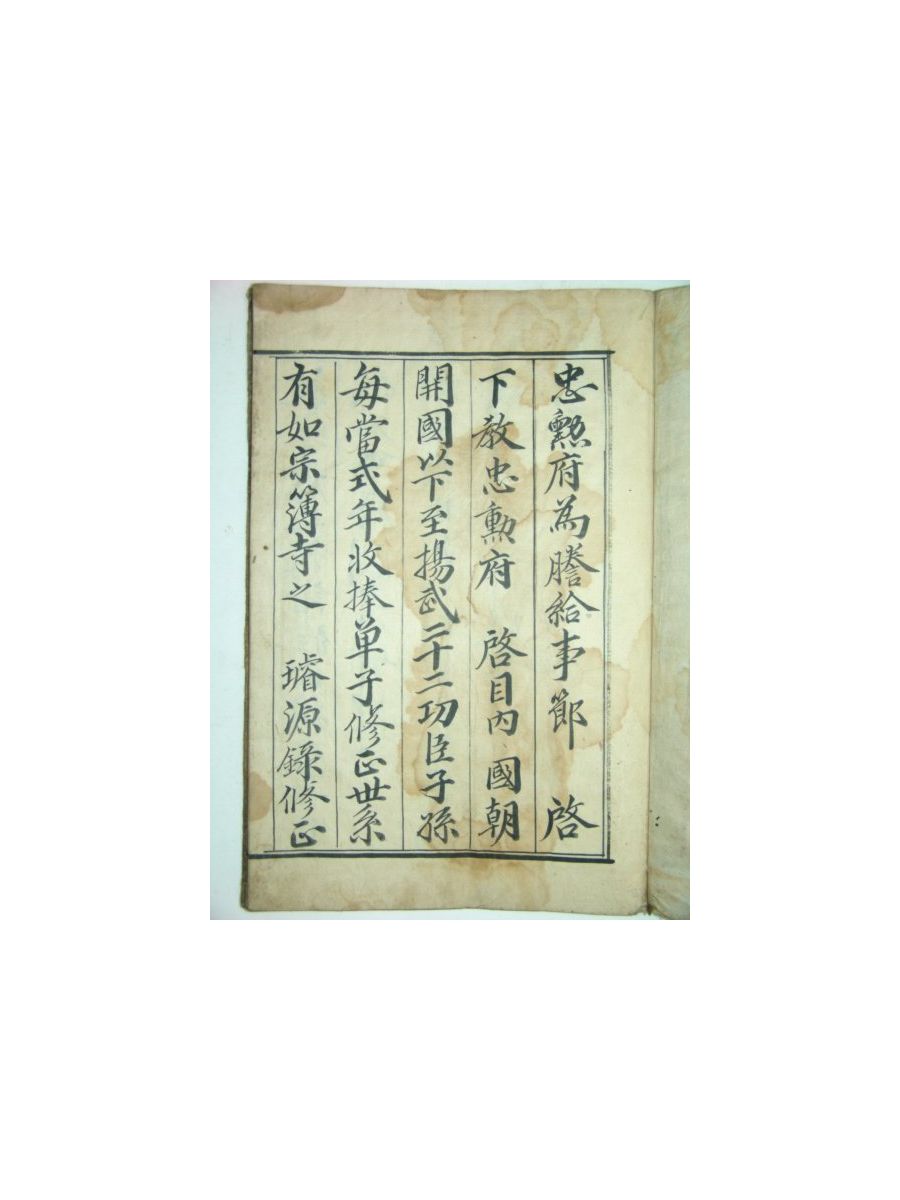 忠勲府為謄給事節 啓
下教忠勲府 啓目内國朝
開國以下至揚武二十二功臣子孫
每當式年收捧单子修正世系
有如宗簿寺之 璿源錄修正